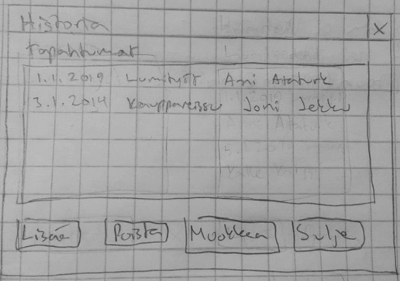 Historia X
tapahtumat
1.1.2019 Lumityöt Ani Ataturk
3.1.2014 Kauppareissu Joni Jekku
Lisää Poista Muokkaa Sulje